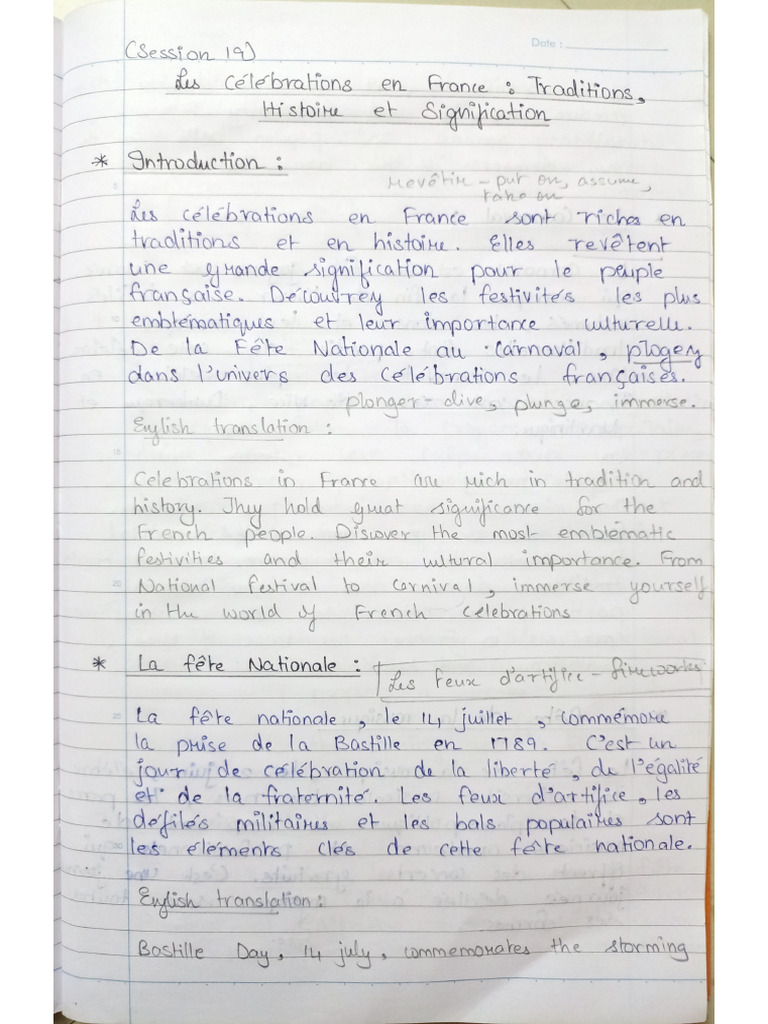 Date :
(Session 19)
Les Célébrations en France : Traditions,
Histoire et Signification
* Introduction :
revêtir - put on, assume,
take on
Les célébrations en France sont riches en
traditions et en histoire. Elles revêtent
une grande signification pour le peuple
française. Découvrez les festivités les plus
emblématiques et leur importance culturelle.
De la Fête Nationale au Carnaval, plogez
dans l'univers des célébrations françaises.
plonger - dive, plunge, immerse.
English translation :
Celebrations in France are rich in tradition and
history. They hold great significance for the
French people. Discover the most emblematic
festivities and their cultural importance. From
National festival to Carnival, immerse yourself
in the world of French Celebrations
* La fête Nationale :
Les feux d'artifice - fireworks
La fête nationale, le 14 juillet, commémore
la prise de la Bastille en 1789. C'est un
jour de célébration de la liberté, de l'égalité
et de la fraternité. Les feux d'artifice, les
défilés militaires et les bals populaires sont
les éléments clés de cette fête nationale.
English translation :
Bastille Day, 14 july, commemorates the storming